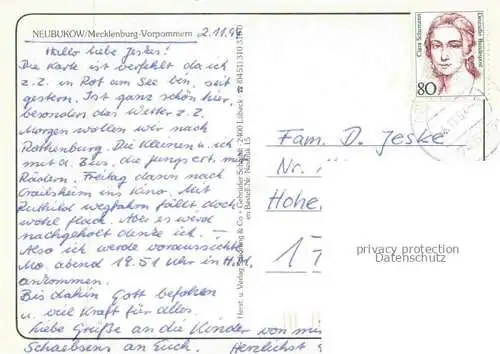 NEUBUKOW/Mecklenburg-Vorpommern 2.11.94
Hallo liebe Jeskes!
Die Karte ist verfehlt da ich
z.Z. in Rot am See bin, seit
gestern. Ist ganz schön hier,
besonders das Wetter z.Z.
Morgen wollen wir nach
Rothenburg. Die Kleinen u. ich
mit d. Bus, die Jungs mit
Rädern. Freitag dann nach
Crailsheim ins Kino. Mit
Ruthild wegfahren fällt doch
wohl flach. Aber es wird
nachgeholt denke ich. –
Also ich werde voraussichtl.
Mo. abend 19.51 Uhr in
ankommen.
Bis dahin Gott befohlen
u. viel Kraft für alles.
Liebe Grüße an die Kinder von mir
an Euch. Herzlichst
Herst. u. Verlag & Co · Gebrüder 2400 Lübeck · ☎ (0451) 5 10 31
Clara Schumann
Deutsche Bundespost
80
Fam. D. Jeske
Nr.
Hohe
17
privacy protection
Datenschutz